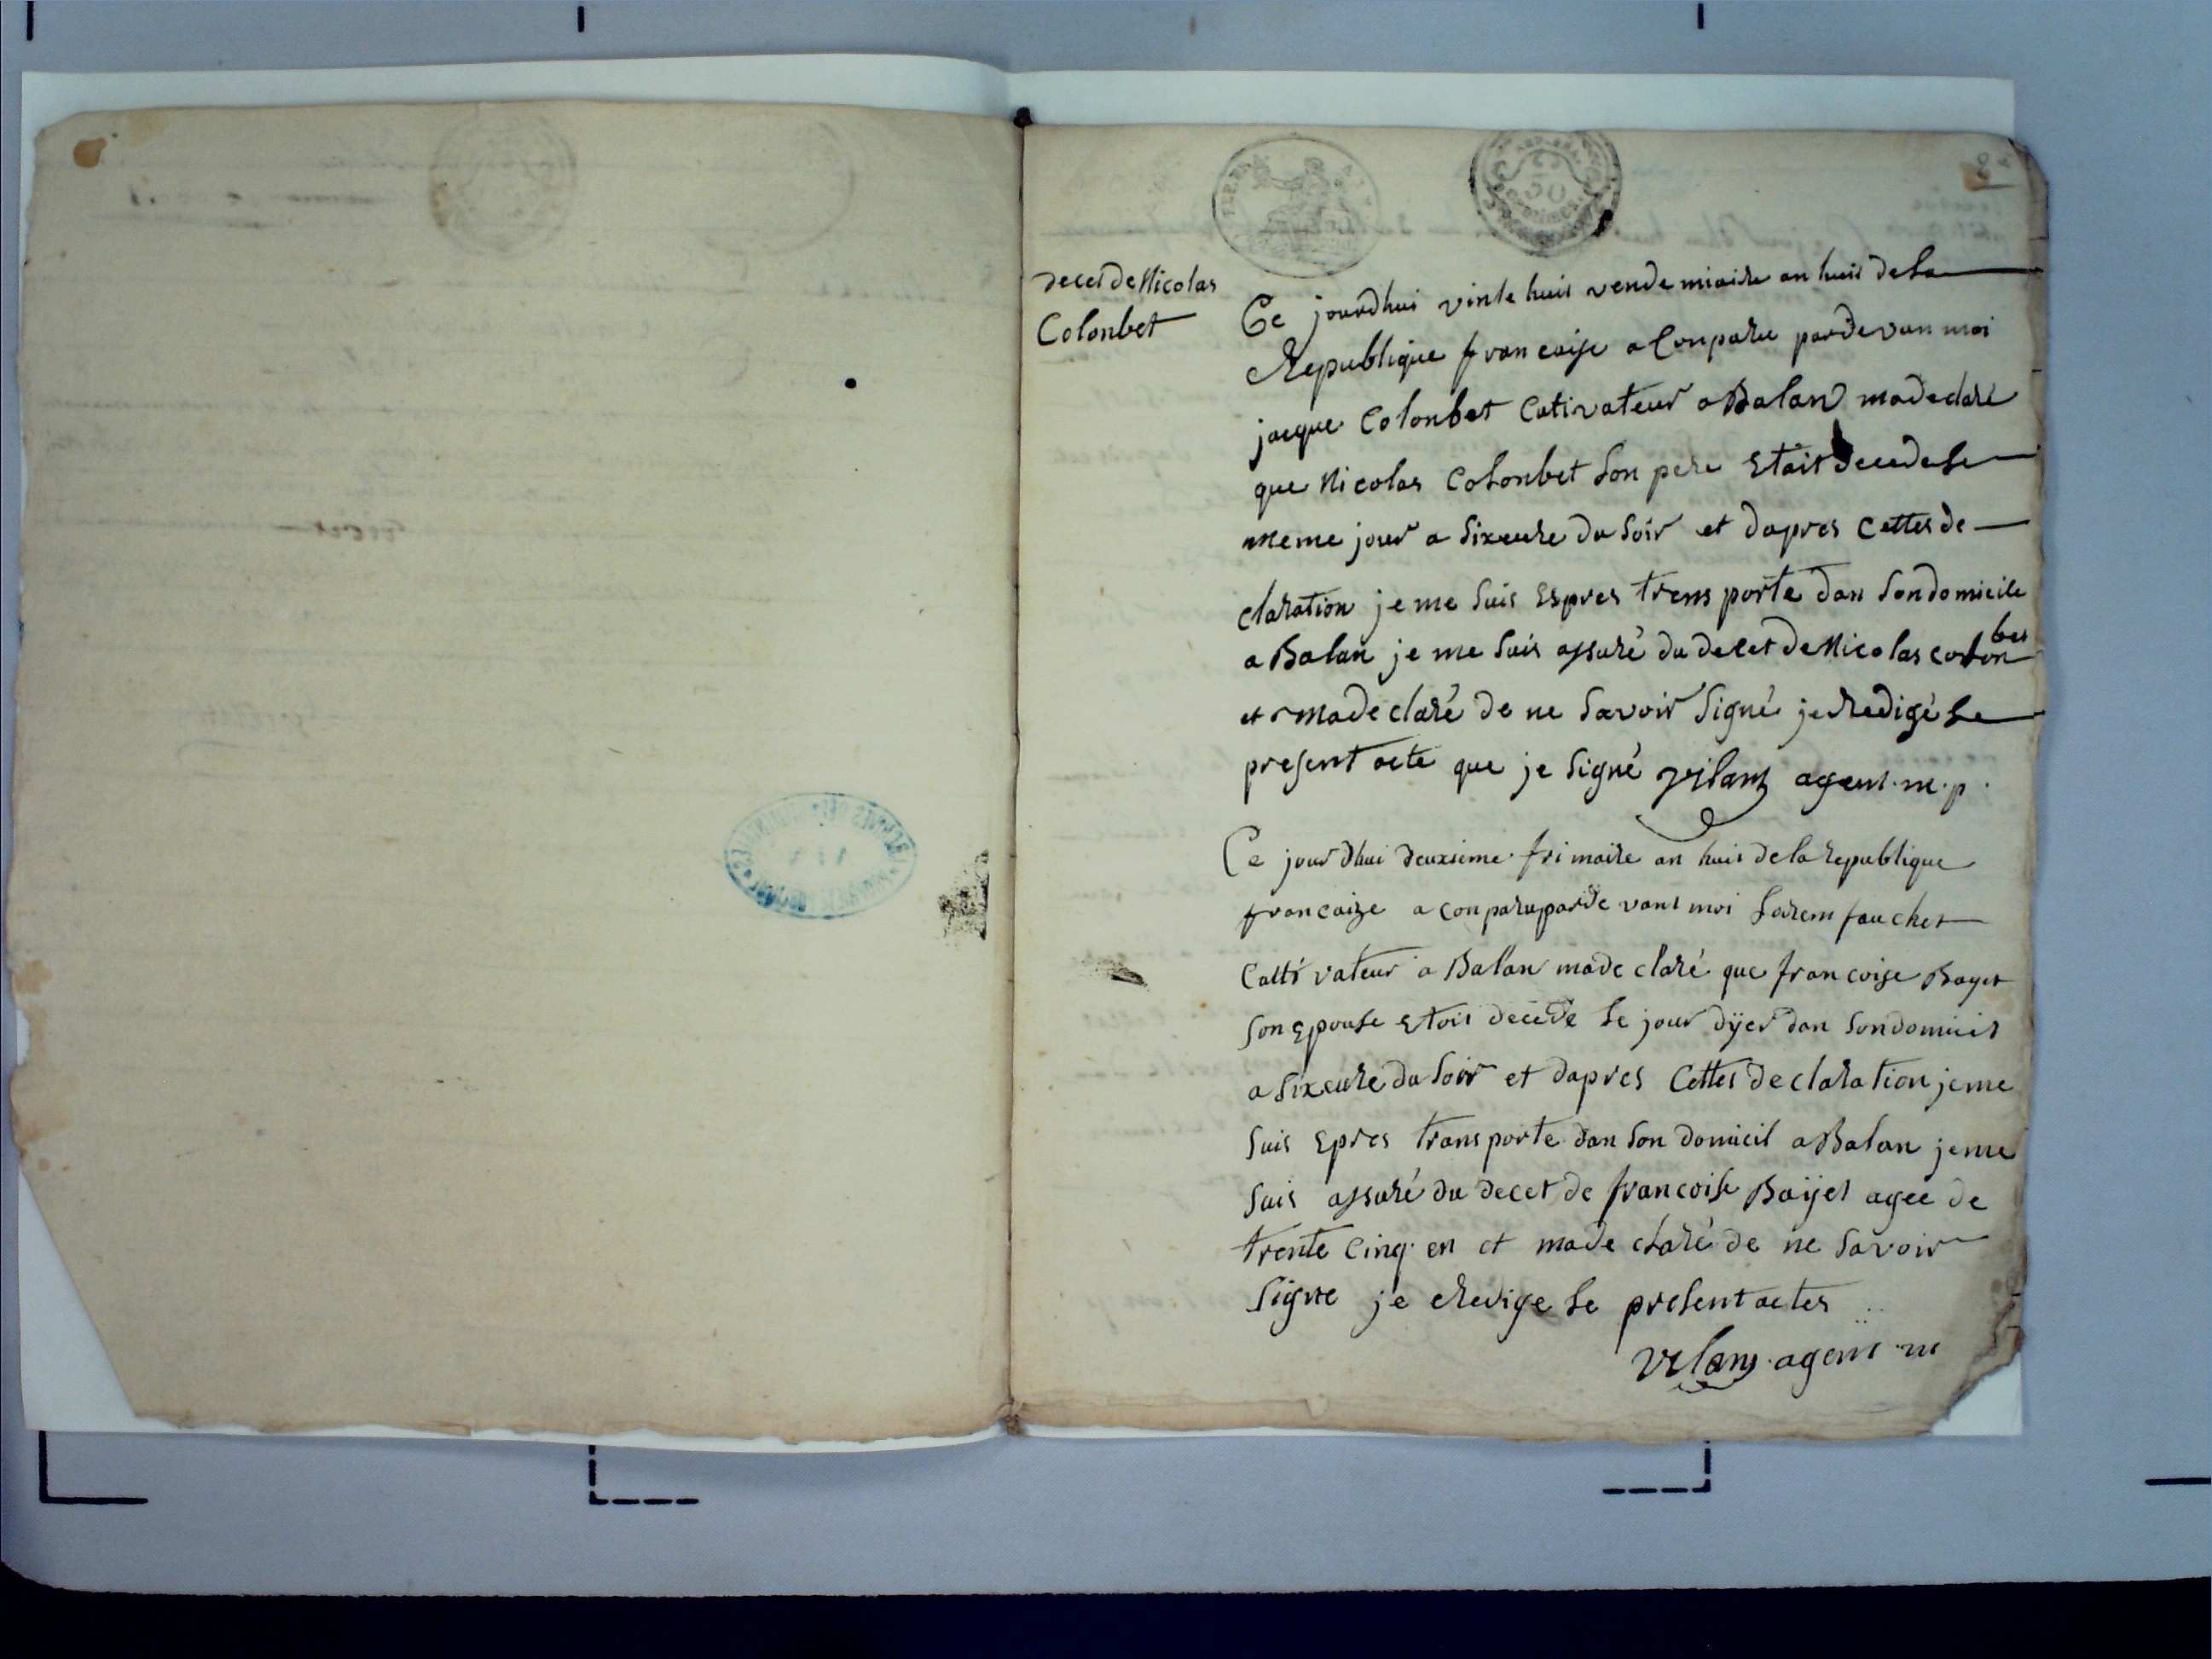 decet de Nicolas
Colonbet
Ce jourdhui vinte huit vende miaire an huit de la
Republique francaise a Conparu pardevan moi
jacque Colonbet Cutivateur a Balan ma declaré
que Nicolas Colonbet son pere Etait decede le
meme jour a sixeure du soir et dapres Cettes de
claration je me suis Espres trensporte dan son domicile
a Balan je me suis assuré du decet de Nicolas colon bet
et ma declaré de ne savoir signé je redigé le
present acte que je signé vilanz agent m. p.
Ce jourdhui deuxieme frimaire an huit de la republique
francaize a conparu pardevant moi Lorem fauchet
Cultivateur a Balan ma declaré que francoise Bayet
son Epouse Etoit decede le jour dÿer dan son domicil
a sixeure du soir et dapres Cettes declaration je me
suis Epres transporte dan son domicil a Balan je me
suis assuré du decet de francoise Baÿet agee de
trente cinq en et ma declaré de ne savoir
signe je redige le present actes
vilanz agent m